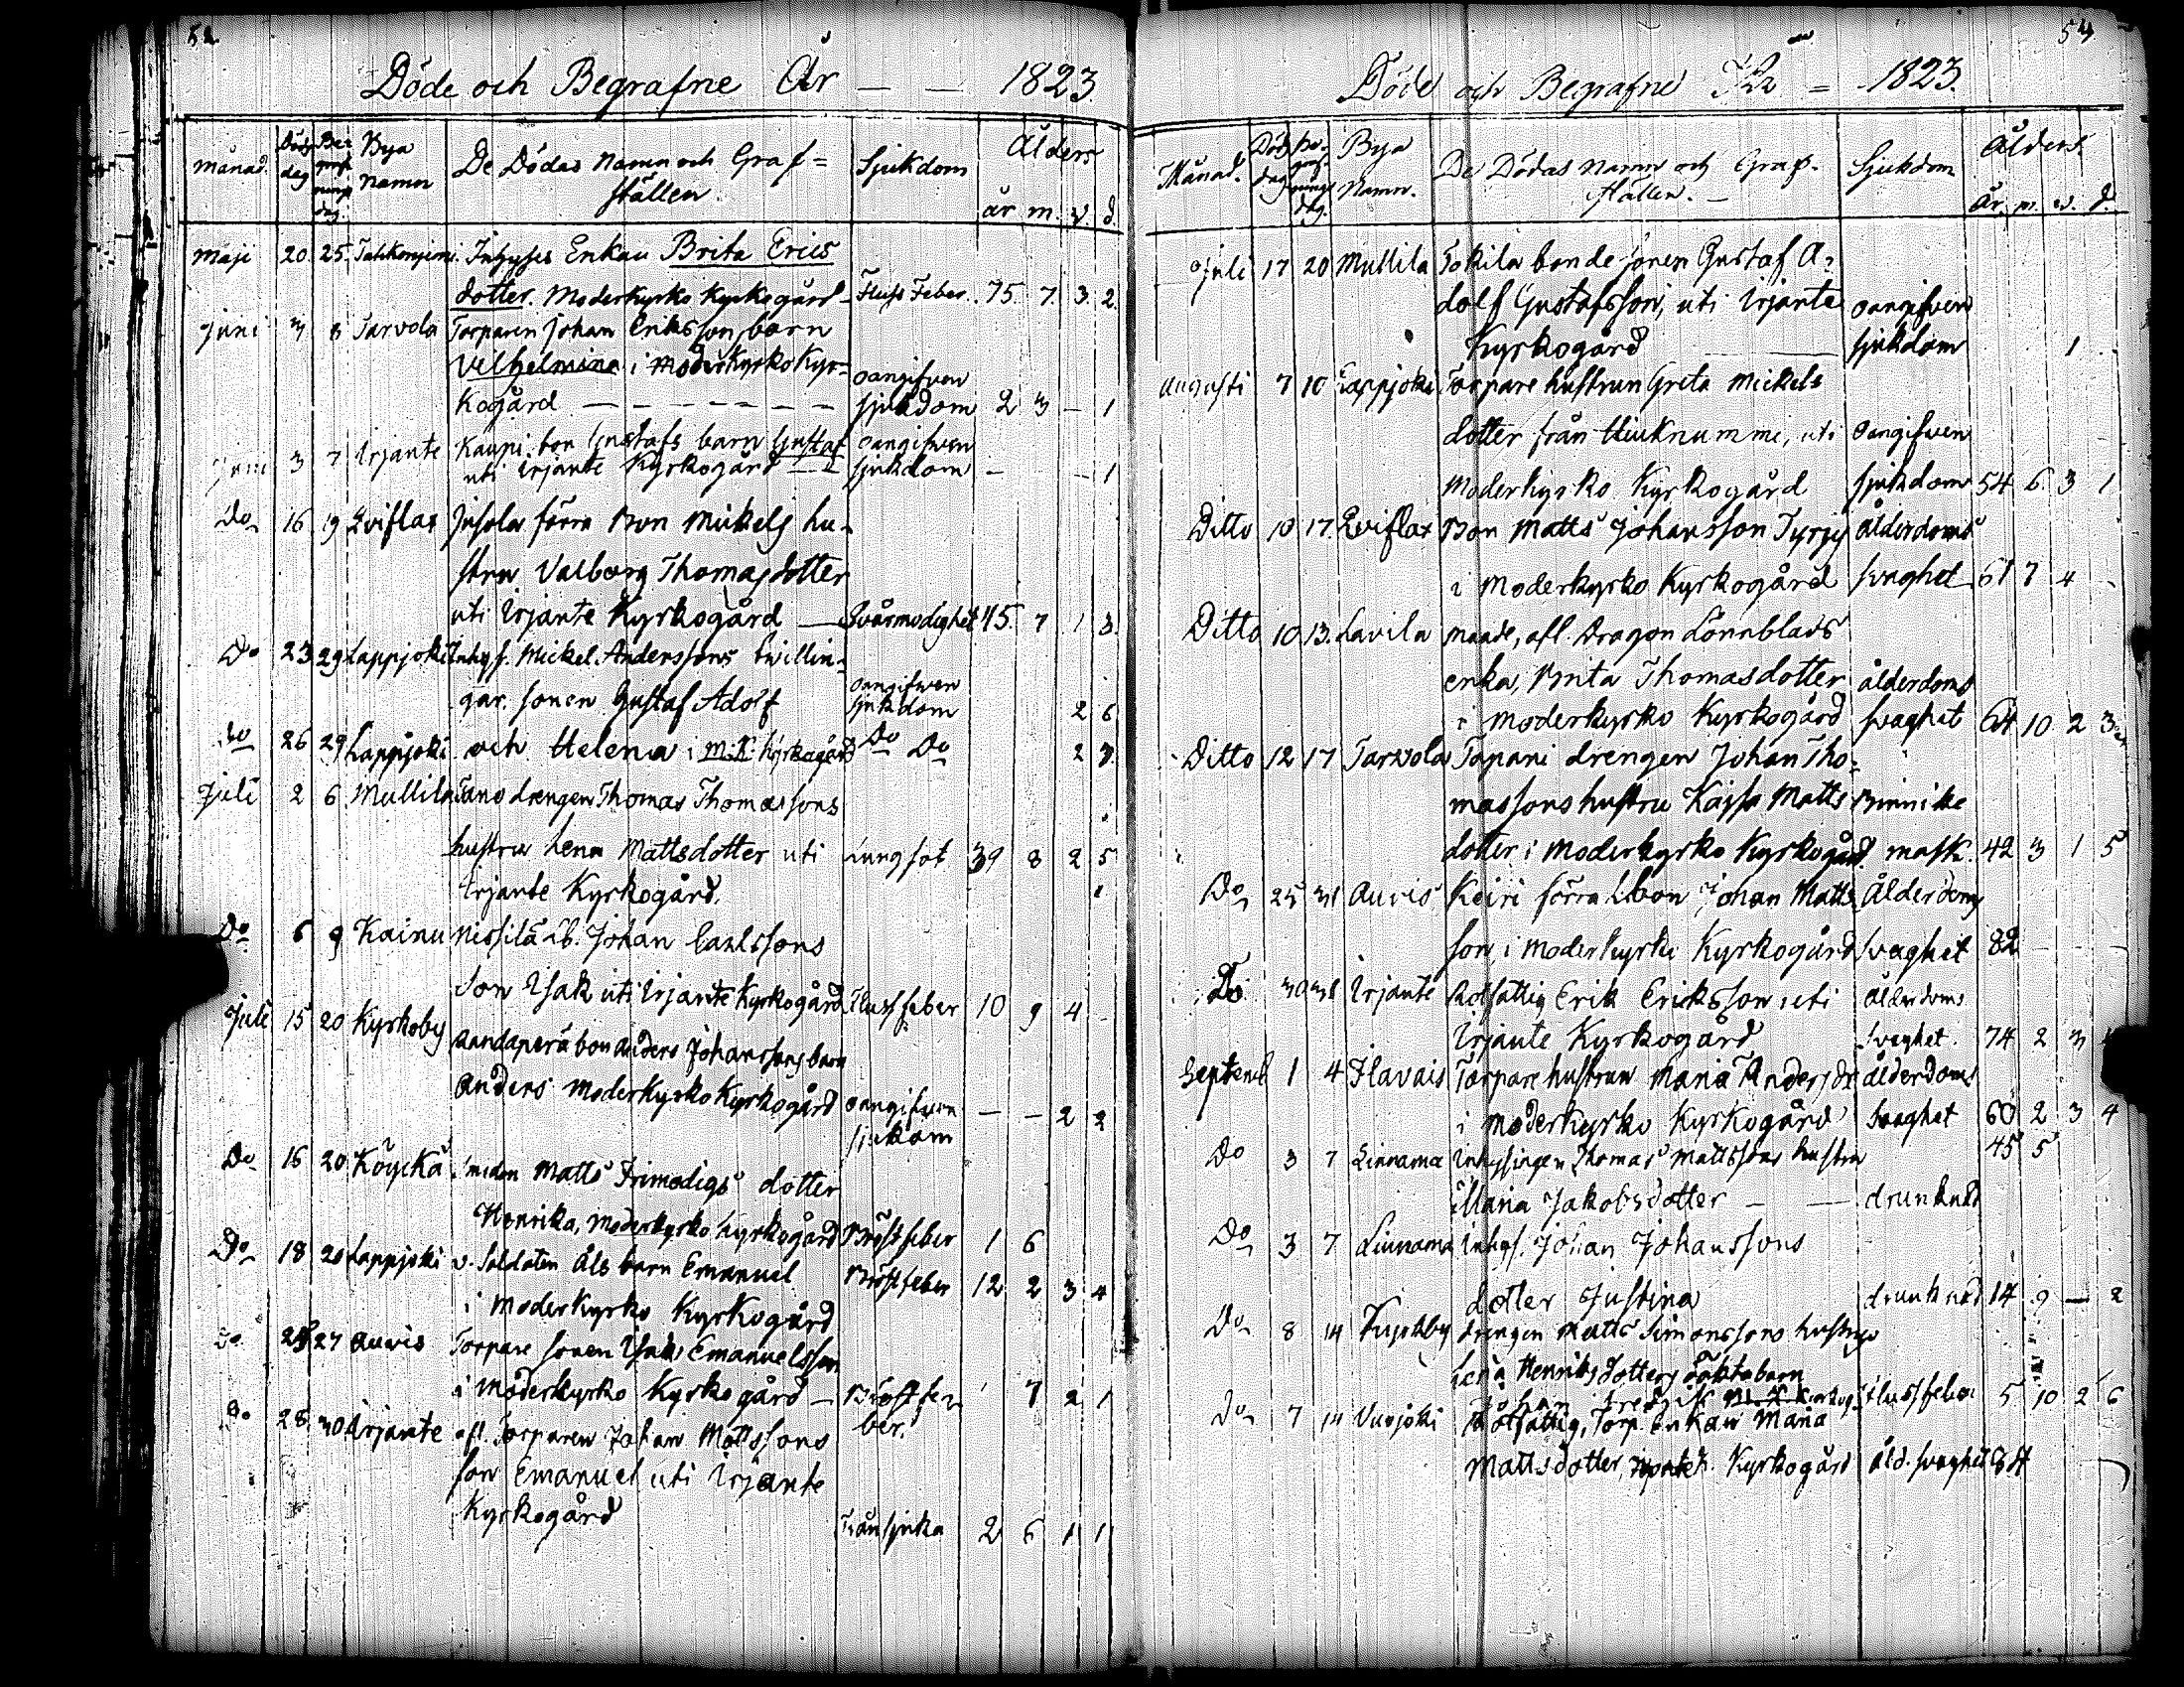 52
Döde och Begrafne År — — 1823.
månad. Döds dag Begrafnings dag. Bya namn De Dödas namn och Graf= ställen. Sjukdom Ålder år m. v. d.
Maji 20. 25. Inhyses Enkan Brita Erics
dotter. Moderkyrko Kyrkogård Fluss Feber. 75. 7. 3. 2.
Juni 3 8 Tarvola Torparen Johan Eriksson, barn
Velhelmina i ModerkyrkoKyr=
kogård — — — — — — oangifven sjukdom 2 3 — 1
Juni 3 7 Irjante Kaupi bon Gustafs barn Gustaf oangifven
uti Irjante Kyrkogård — sjukdom — — 1
Do 16 19 Qviflax Insola förra Bon Mickels hu-
stru Valborg Thomasdotter
uti Irjante Kyrkogård — Svårmodighet 45. 7 1 3.
Do 23 29 Lappjoki Inhys. Mickel Anderssons tvillin-
gar. sonen Gustaf Adolf oangifven sjukdom 2 6
Do 26 29 Lappjoki och Helena i M.K. Kyrkogård Do Do 2
Juli 2 6 Mullila Tano drengen Thomas Thomassons
hustru Lena Mattsdotter uti Lungsot 39 8 2 5
Irjante Kyrkogård.
Do 6 9 Kainu Nissilä Lb. Johan Carlssons
Son Isak uti Irjante Kyrkogård Flussfeber 10 9 4 -
Juli 15 20 Kyrkoby Randaperä bon Anders Johanssons barn
Anders Moderkyrko Kyrkogård oangifven sjukdom — — 2 2
Do 16 20. Köyckä Smeden Matts Frimodigs dotter
Henrika, Moderkyrko Kyrkogård Bröstfeber 1 6
Do 18 20 Lappjoki v. Soldaten Als barn Emanuel Bröstfeber 12 2 3 4
i Moderkyrko Kyrkogård
Do. 27 Auvis Torpare sonen Isak Emanuelsson
i Moderkyrko Kyrkogård — Bröstfe- 7 2 1
ber.
Do 28. 30 Irjante afl. Torparen Johan Mattssons
son Emanuel uti Irjante
Kyrkogård Tränsjuka 2 6 1 1
53
Döde och Begrafne År = 1823.
Månad. Döds dag Begrafnings dag. Bya Namn. De Dödas namn och Graf- ställen. — Sjukdom Ålder. År. m. v. d.
Juli 17 20 Mullila Tokila bonde sonen Gustaf A=
dolf Gustafsson, uti Irjante oangifven
Kyrkogård — sjukdom 1
Augusti 7 10 Lappjoki Torpare hustrun Greta Mickels
dotter från Hinknummi, uti Oangifven
Moderkyrko Kyrkogård sjukdom 54 6 3 1
Ditto 10 17. Qviflax Bon Matts Johansson Tyrjy ålderdoms
i Moderkyrko Kyrkogård svaghet 61 7 4 -
Ditto 10. 13. Lavila afl. Dragon Lönnblads
enka, Brita Thomasdotter ålderdoms
i Moderkyrko Kyrkogård svaghet 64 10 2 3
Ditto 12 17 Tarvola Tapani drengen Johan Tho=
massons hustru Kajsa Matts Binnike
dotter i Moderkyrko Kyrkogård mask. 42 3 1 5
Do 25 31 Auvis Keiri förra Lbon Johan Matts Ålderdoms
son i Moderkyrko Kyrkogård Svaghet 82 — — —
Do 30 31 Irjante Rotfattig Erik Eriksson uti ålderdoms
Irjante Kyrkogård svaghet. 74 2 3
Septemb 1 4 Flavais Torpare hustrun Maria Andersdr ålderdoms
i Moderkyrko Kyrkogård svaghet 60 2 3 4
Do 3 7 Linnama Inhysingen Thomas Mattssons hustru 45 5
Maria Jakobsdotter — — drunknad
Do 3 7 Linnama Inhys. Johan Johanssons
dotter Justina drunknad 14 9 — 2
Do 8 14 drengen Matts Simonssons hustrus
Lena Henriksdotters oäkta barn
Flussfeber 5 10 2 6
Do 7 14 Vuojoki Rotfattig, Torp. enkan Maria
Mattsdotter, Kyrkogård åld. svaghet 84